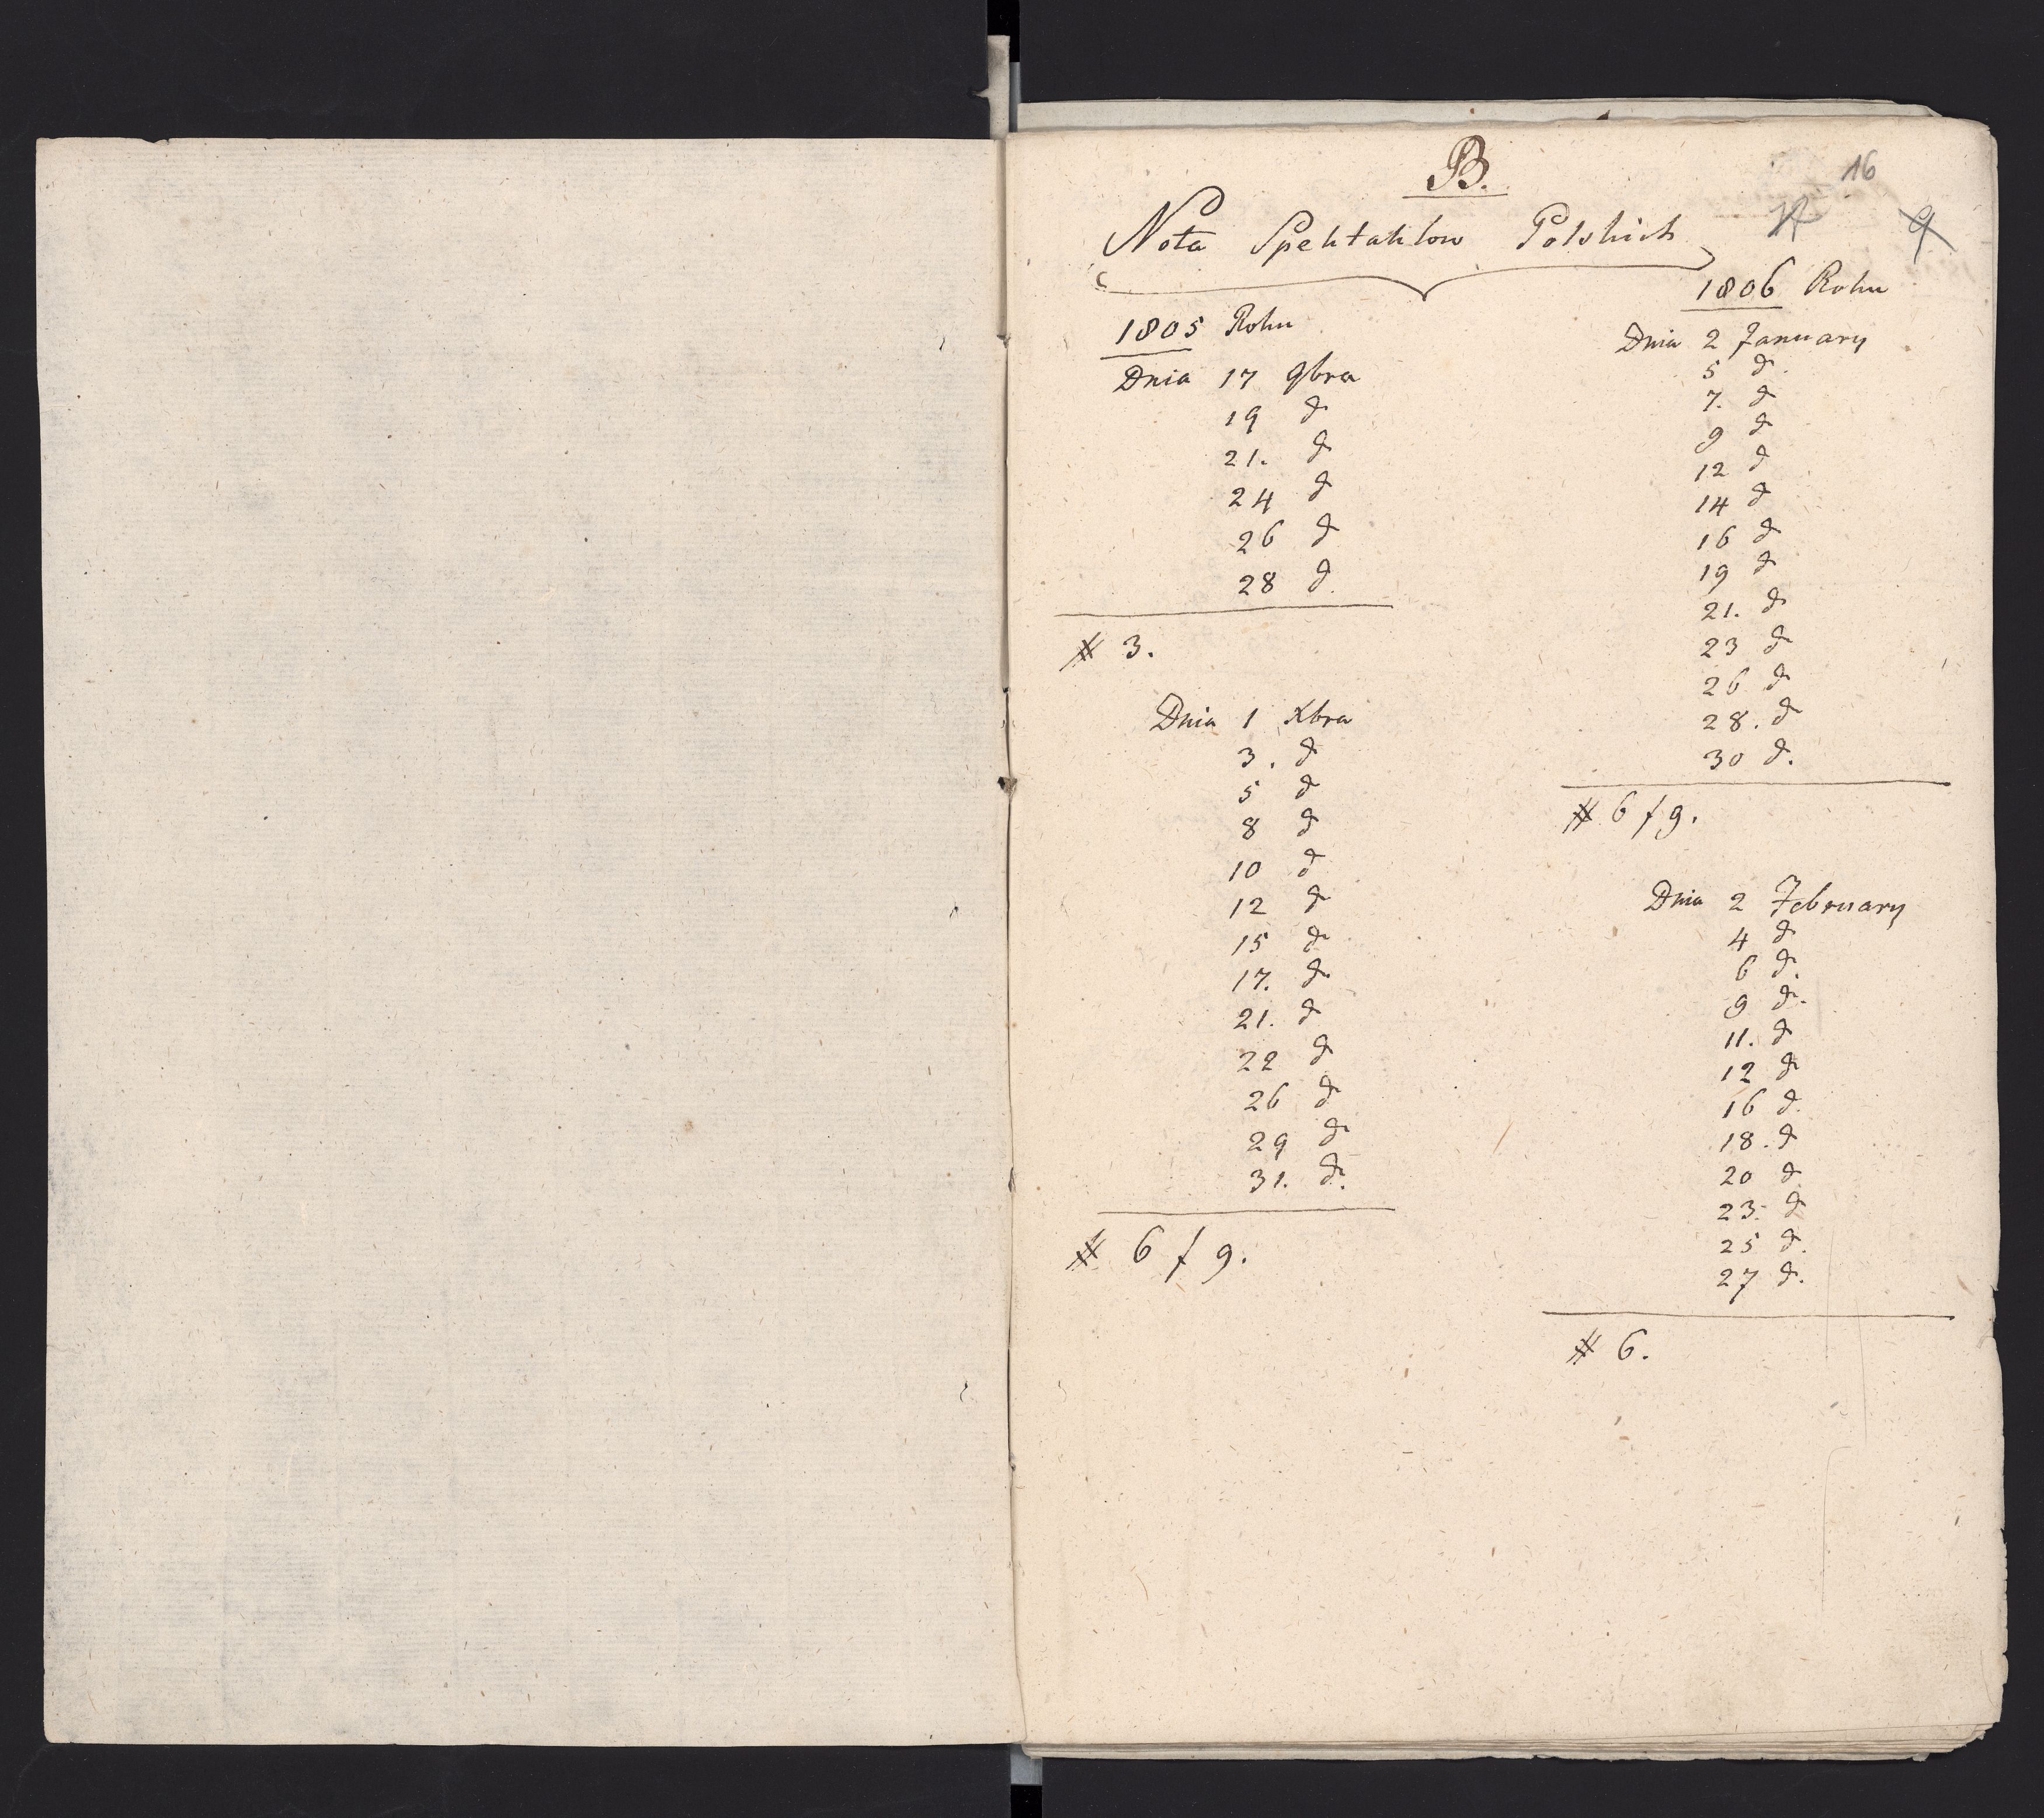 B.
16
Nota Spektaklow Polskich
9
1805 Roku
Dnia 17 9bra
19 d
21. d
24 d
26 d
28 d.
# 3.
Dnia 1 Xbra
3. d
5 d
8 d
10 d
12 d
15 d
17. d
21. d
22 d
26 d
29 d
31. d.
# 6 f 9.
1806 Roku
Dnia 2 January
5 d.
7. d
9 d
12 d
14 d
16 d
19 d
21. d
23 d
26 d
28. d
30 d.
# 6 f 9.
Dnia 2 February
4 d
6 d.
9 d.
11. d
12 d
16 d.
18. d
20 d
23. d
25 d.
27 d.
# 6.